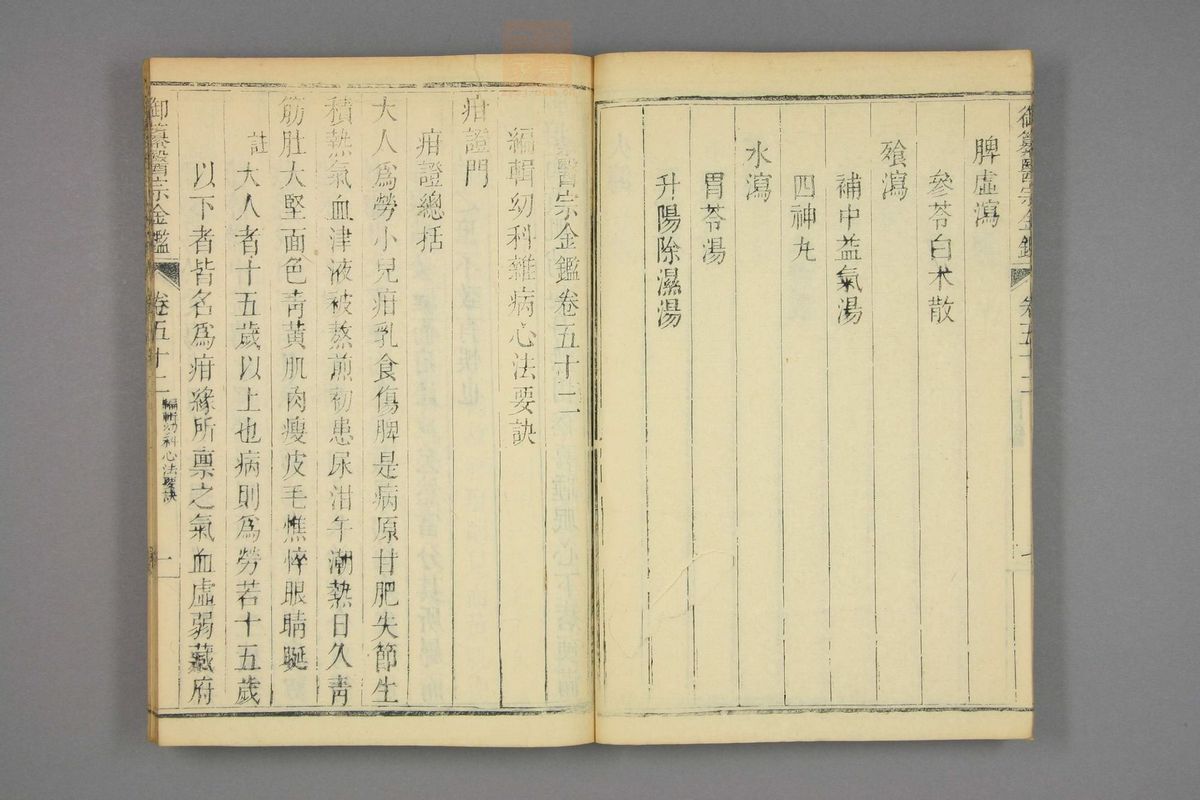 御纂醫宗金鑑 卷五十二
脾虛瀉
參苓白朮散
飱瀉
補中益氣湯
四神丸
水瀉
胃苓湯
升陽除濕湯
醫宗金鑑卷五十二
編輯幼科雜病心法要訣
疳證門
疳證總括
大人爲勞小兒疳乳食傷脾是病原甘肥失節生
積熱氣血津液被熬煎初患尿泔午潮熱日久靑
筋肚大堅面色靑黃肌肉瘦皮毛憔悴眼睛䀹
註 大人者十五歲以上也病則爲勞若十五歲
以下者皆名爲疳緣所禀之氣血虛弱藏府
御纂醫宗金鑑 卷五十二 編輯幼科心法要訣 一